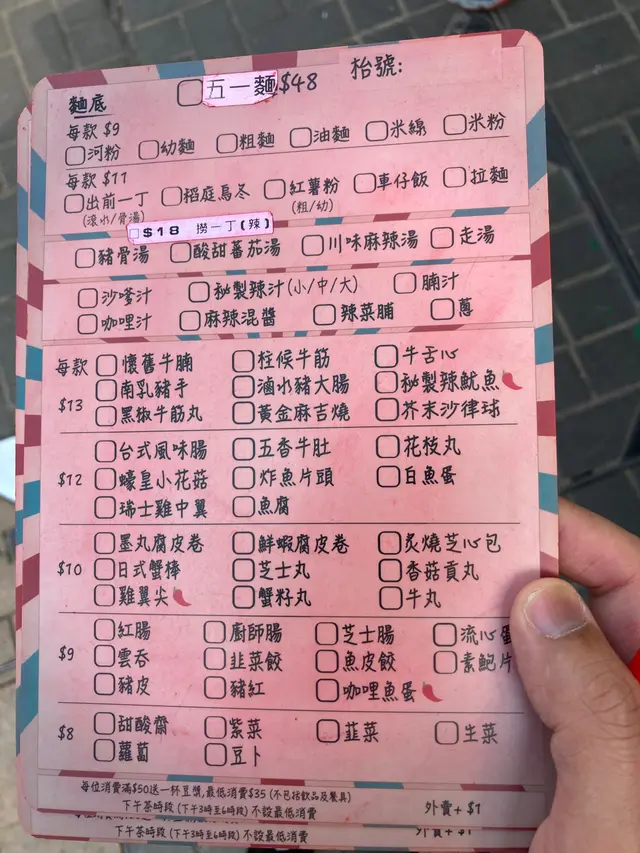 五一麵 $48 枱號:
麵底
每款 $9
河粉 幼麵 粗麵 油麵 米線 米粉
每款 $11
出前一丁 稻庭烏冬 紅薯粉 車仔飯 拉麵
(滾水/骨湯) (粗/幼)
$18 撈一丁(辣)
豬骨湯 酸甜蕃茄湯 川味麻辣湯 走湯
沙嗲汁 秘製辣汁(小/中/大) 腩汁
咖哩汁 麻辣混醬 辣菜脯 蔥
每款 懷舊牛腩 柱侯牛筋 牛舌心
$13 南乳豬手 滷水豬大腸 秘製辣魷魚
黑椒牛筋丸 黃金麻吉燒 芥末沙律球
台式風味腸 五香牛肚 花枝丸
$12 蠔皇小花菇 炸魚片頭 白魚蛋
瑞士雞中翼 魚腐
墨丸腐皮卷 鮮蝦腐皮卷 炙燒芝心包
$10 日式蟹棒 芝士丸 香菇貢丸
雞翼尖 蟹籽丸 牛丸
紅腸 廚師腸 芝士腸 流心蛋
$9 雲吞 韭菜餃 魚皮餃 素鮑片
豬皮 豬紅 咖哩魚蛋
$8 甜酸齋 紫菜 韮菜 生菜
蘿蔔 豆卜
每位消費滿$50送一杯豆漿,最低消費$35 (不已括飲品及餐具)
下午茶時段 (下午3時至6時段) 不設最低消費 外賣+$1
下午茶時段 (下午3時至6時段) 不設最低消費 外賣+$1